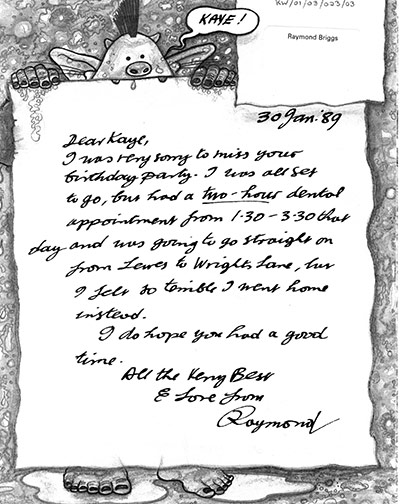 KAYE!
KW/01/03/023/03
Raymond Briggs
30 Jan. '89
Dear Kaye,
I was very sorry to miss your
birthday party. I was all set
to go, but had a two-hour dental
appointment from 1.30 - 3.30 that
day and was going to go straight on
from Lewes to Wrights Lane, but
I felt so terrible I went home
instead.
I do hope you had a good
time.
All the Very Best
& Love from
Raymond